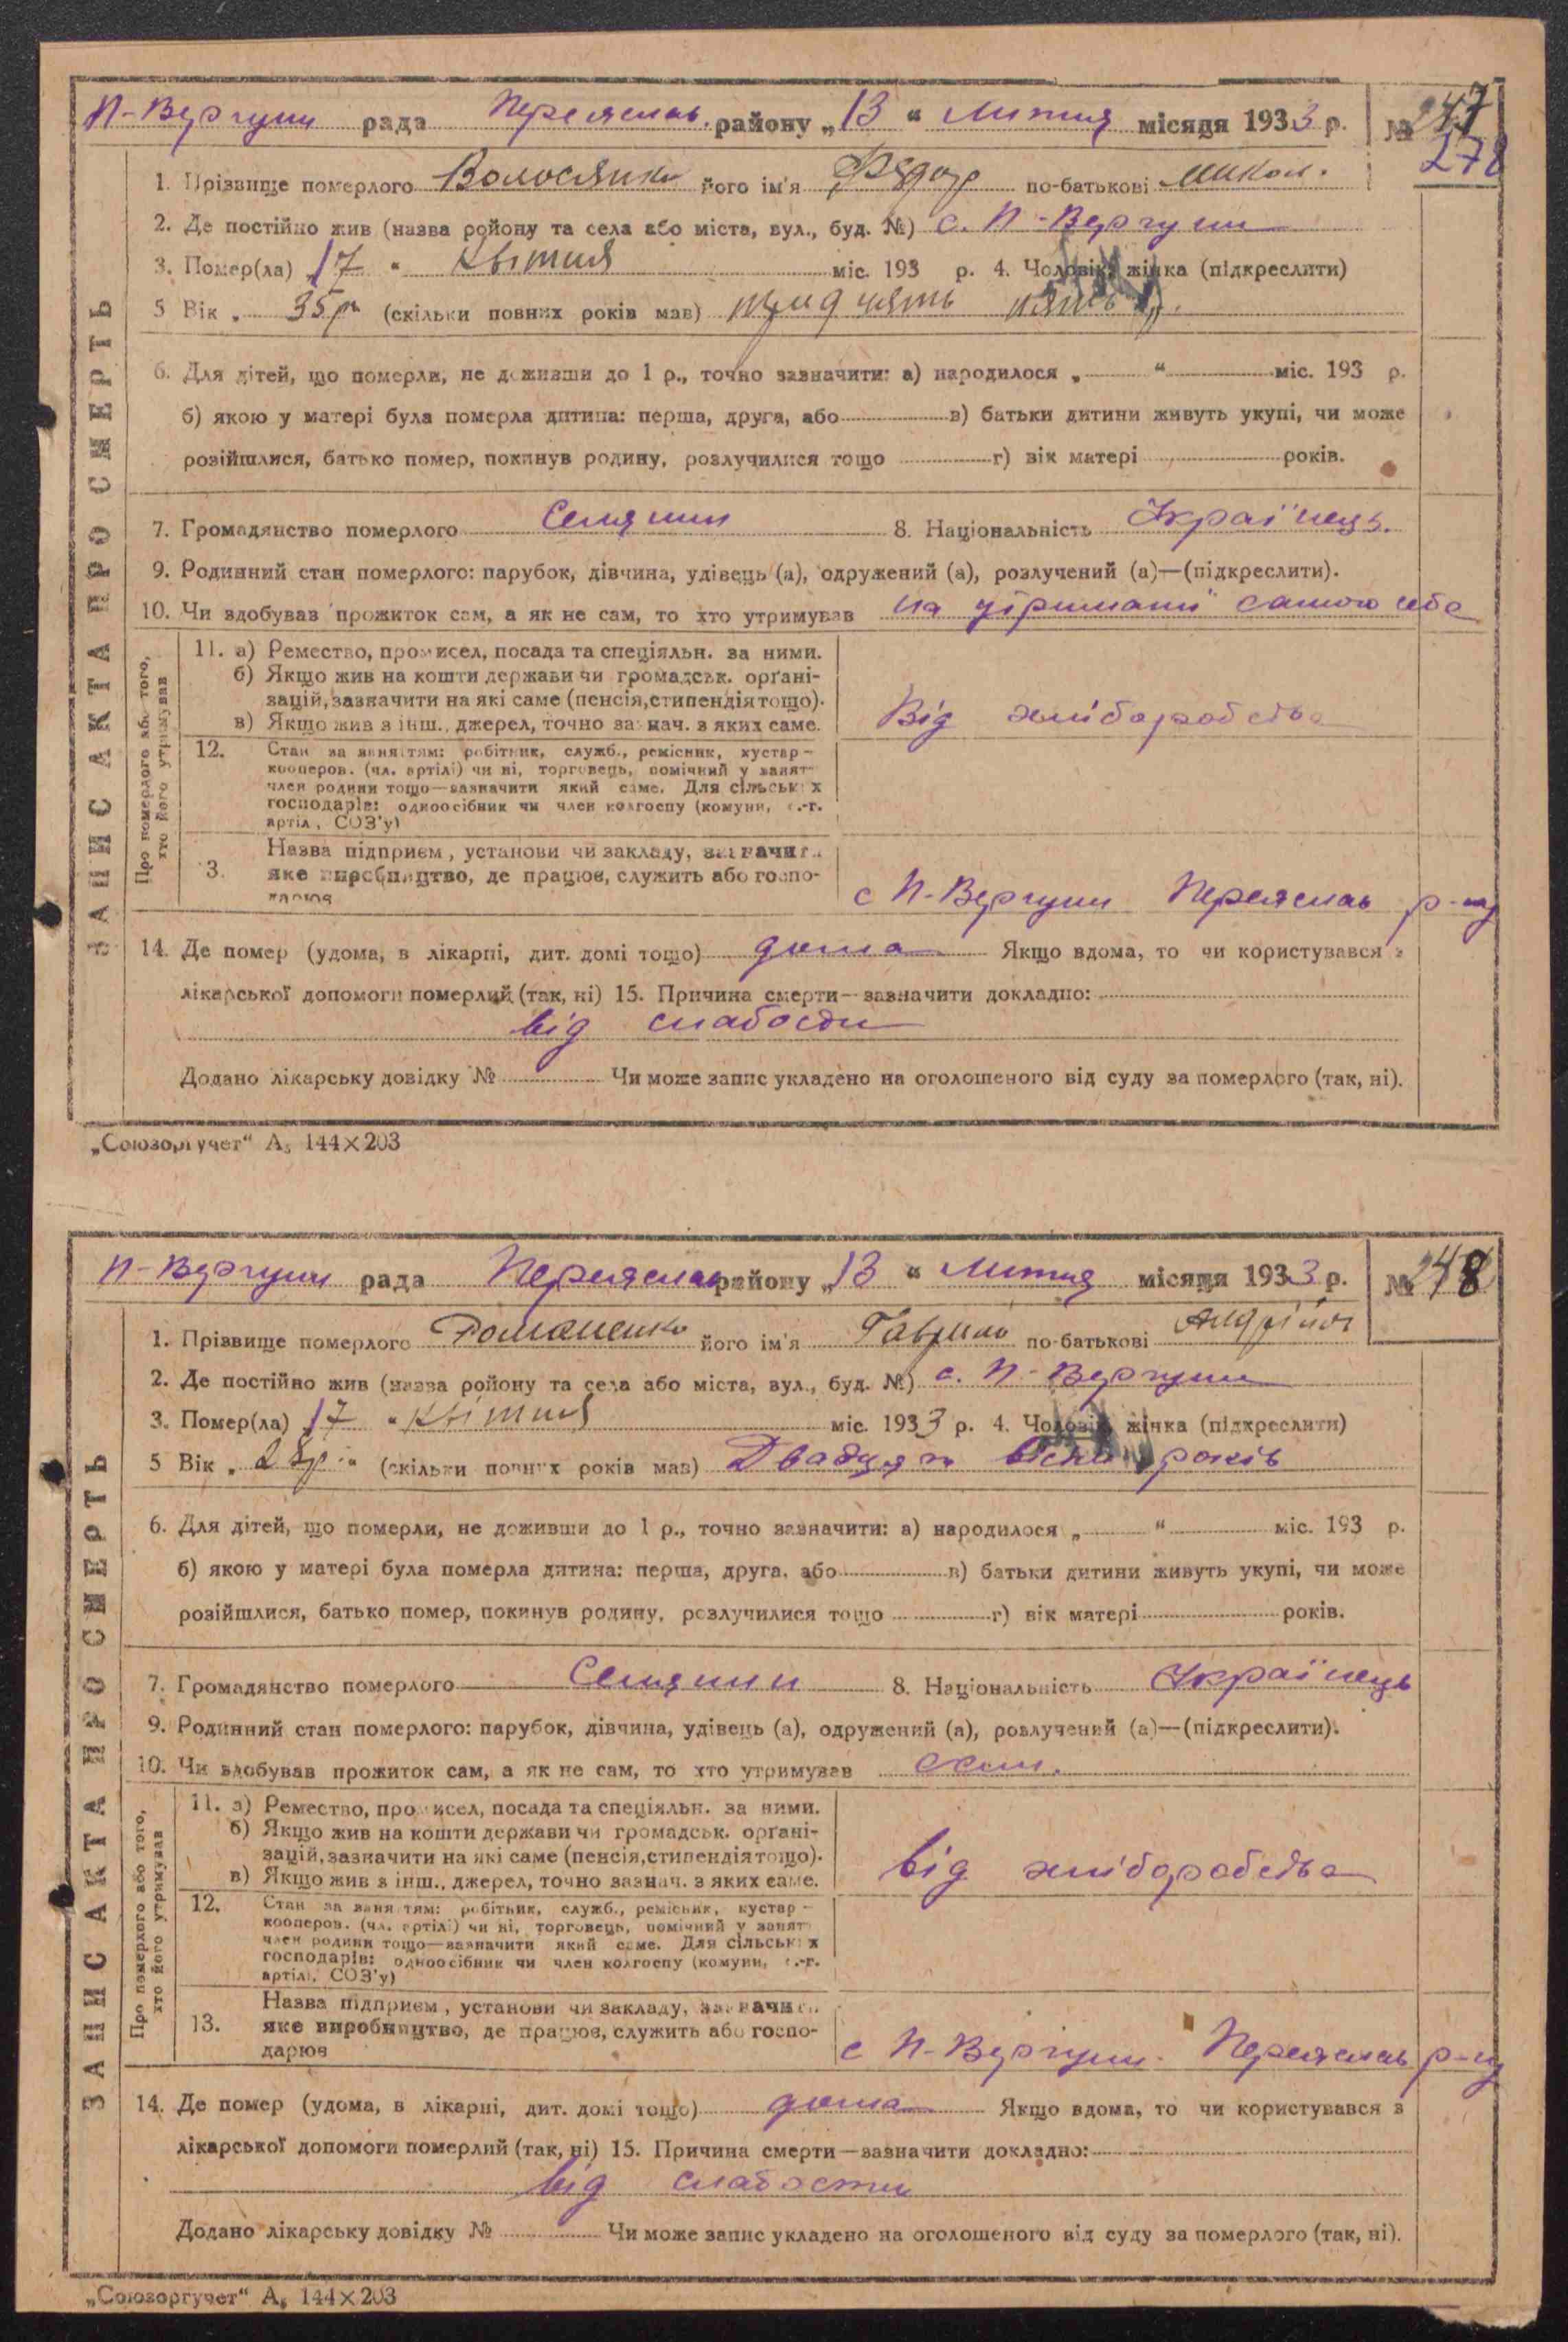 П-Вергуни рада Переяслав. району „13“ Липня місяця 1933 р. № 247
278
1. Прізвище померлого Волосянко його ім'я Федор по-батькові Микол.
2. Де постійно жив (назва ройону та села або міста, вул., буд. №) с. П-Вергуни
3. Помер(ла) „17“ Квітня міс. 193 р. 4. Чоловік, жінка (підкреслити)
5 Вік „35р“ (скільки повних років мав) тридцять пять р.
6. Для дітей, що померли, не доживши до 1 р., точно зазначити: а) народилося „ “ міс. 193 р.
б) якою у матері була померла дитина: перша, друга, або в) батьки дитини живуть укупі, чи може
розійшлися, батько помер, покинув родину, розлучилися тощо г) вік матері років.
7. Громадянство померлого Селянин 8. Національність Українець.
9. Родинний стан померлого: парубок, дівчина, удівець (а), одружений (а), розлучений (а)—(підкреслити).
10. Чи здобував прожиток сам, а як не сам, то хто утримував на утриманні самого себе
ЗАПИС АКТА ПРО СМЕРТЬ
Про померлого або того, хто його утримував
11. а) Ремество, промисел, посада та спеціяльн. за ними.
б) Якщо жив на кошти держави чи громадськ. орґані-
зацій, зазначити на які саме (пенсія, стипендія тощо).
в) Якщо жив з інш., джерел, точно зазнач. з яких саме.
Від хліборобства
12. Стан за заняттям: робітник, служб., ремісник, кустар-
кооперов. (чл. артілі) чи ні, торговець, помічний у занят
член родини тощо—зазначити який саме. Для сільських
господарів: одноосібник чи член колгоспу (комуни, с.-г.
артіл, СОЗ'у)
3. Назва підприєм, установи чи закладу, зазначити
яке виробництво, де працює, служить або госпо-
дарює
с П-Вергуни Переяслав р-ну
14. Де помер (удома, в лікарні, дит. домі тощо) дома Якщо вдома, то чи користувався з
лікарської допомоги померлий (так, ні) 15. Причина смерти—зазначити докладно:
від слабости
Додано лікарську довідку № Чи може запис укладено на оголошеного від суду за померлого (так, ні).
„Союзоргучет“ А₅ 144×203
П-Вергуни рада Переяслав району „13“ Липня місяця 1933 р. № 248
1. Прізвище померлого Романенко його ім'я Гаврило по-батькові Андрійов
2. Де постійно жив (назва ройону та села або міста, вул., буд. №) с. П-Вергуни
3. Помер(ла) „17“ Квітня міс. 1933 р. 4. Чоловік, жінка (підкреслити)
5 Вік „28р.“ (скільки повних років мав) Двадцять вісім років
6. Для дітей, що померли, не доживши до 1 р., точно зазначити: а) народилося „ “ міс. 193 р.
б) якою у матері була померла дитина: перша, друга, або в) батьки дитини живуть укупі, чи може
розійшлися, батько помер, покинув родину, розлучилися тощо г) вік матері років.
7. Громадянство померлого Селянин 8. Національність Українець
9. Родинний стан померлого: парубок, дівчина, удівець (а), одружений (а), розлучений (а)—(підкреслити).
10. Чи здобував прожиток сам, а як не сам, то хто утримував Сам.
ЗАПИС АКТА ПРО СМЕРТЬ
Про померлого або того, хто його утримував
11. а) Ремество, промисел, посада та спеціяльн. за ними.
б) Якщо жив на кошти держави чи громадськ. орґані-
зацій, зазначити на які саме (пенсія, стипендія тощо).
в) Якщо жив з інш., джерел, точно зазнач. з яких саме.
від хліборобства
12. Стан за заняттям: робітник, служб., ремісник, кустар-
кооперов. (чл. артілі) чи ні, торговець, помічний у занят
член родини тощо—зазначити який саме. Для сільських
господарів: одноосібник чи член колгоспу (комуни, с.-г.
артілі, СОЗ'у)
13. Назва підприєм, установи чи закладу, зазначити
яке виробництво, де працює, служить або госпо-
дарює
с П-Вергуни Переяслав р-ну
14. Де помер (удома, в лікарні, дит. домі тощо) дома Якщо вдома, то чи користувався з
лікарської допомоги померлий (так, ні) 15. Причина смерти—зазначити докладно:
від слабости
Додано лікарську довідку № Чи може запис укладено на оголошеного від суду за померлого (так, ні).
„Союзоргучет“ А₅ 144×203